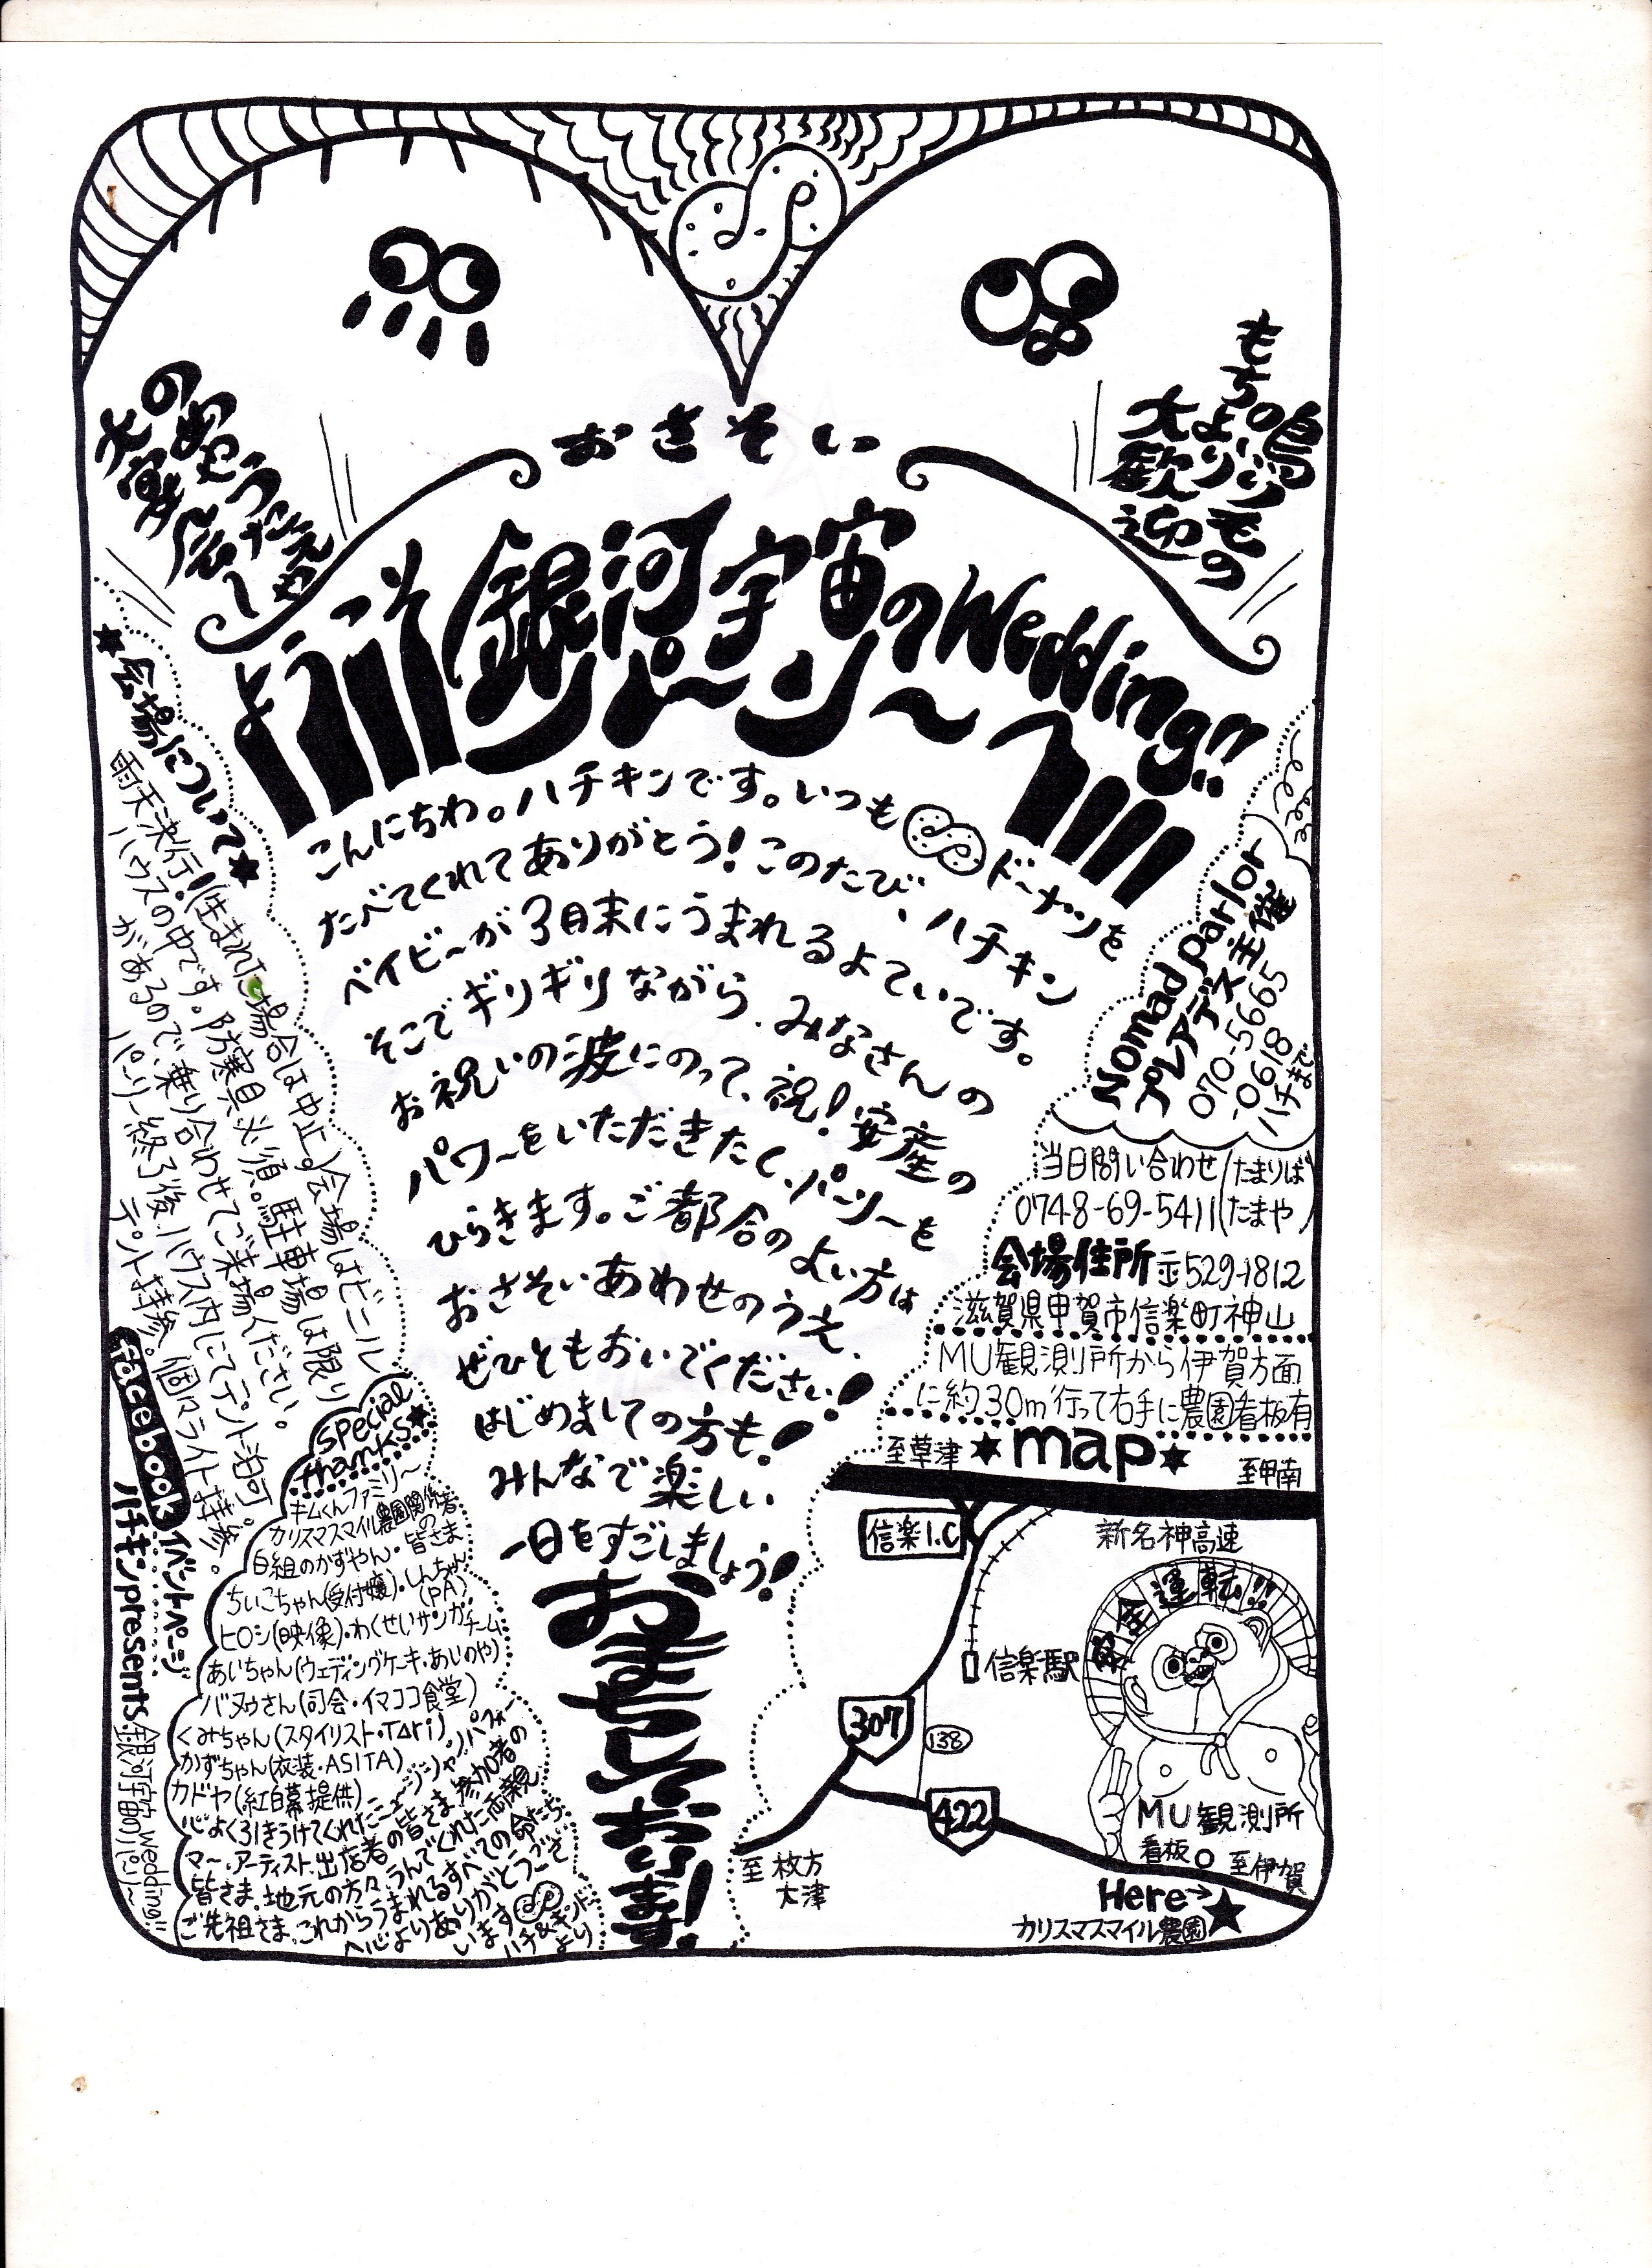 のめやうたえ
大宴会
しゅ
鳴りもの
もちより
大歓迎
おさそい
ようこそ
銀河宇宙のWedding!!
パ〜リ〜へ
こんにちわ。ハチキンです。いつも ドーナツを
たべてくれてありがとう!このたび、ハチキン
ベイビ〜が3月末にうまれるよていです。
そこでギリギリながら、みなさんの
お祝いの波にのって、祝!安産の
パワ〜をいただきたく、パ〜リ〜を
ひらきます。ご都合のよい方は
おさそいあわせのうえ、
ぜひともおいでください!
はじめましての方も!
みんなで楽しい
一日をすごしましょう!
おまちしております!
★会場について★
雨天決行!!(生まれた場合は中止。)会場はビニル
ハウスの中です。防寒具必須。駐車場は限り
があるので乗り合わせてご来場ください。
パ〜リ〜終了後、ハウス内にてテント泊可。
テント持参。個々ライト持参。
facebook イベントページ
ハチキンpresents.銀河宇宙のパ〜リ〜wedding!!
special
thanks★
キムくんファミリ〜
カリスマスマイル農園関係者
の
白組のかずやん・皆さま
ちいこちゃん(受付嬢)・しんちゃん
(PA)
ヒロシ(映像)・わくせいサンガチーム
あいちゃん(ウェディングケーキ・あじのや)
バヌゥさん(司会・イマココ食堂)
くみちゃん(スタイリスト・Tari)
かずちゃん(衣装・ASITA)
カドヤ(紅白幕提供)
心よく引きうけてくれたミュージシャン、パフォー
マ〜・アーティスト、出店者の皆さま、参加者の
皆さま、地元の方々、うんでくれた両親
ご先祖さま、これからうまれるすべての命たち
へ心よりありがとうござ
います
ハチ&キンド
より
Nomad parlor
プレアデス主催
070-5665
-0618
ハチまで
当日問い合わせ(たまりば
0748-69-5411(たまや)
会場住所 〒529-1812
滋賀県甲賀市信楽町神山
MU観測所から伊賀方面
に約30m行って右手に農園看板有
至草津 ★map★ 至甲南
新名神高速
信楽I.C
安全運転!!
信楽駅
307
138
422
MU観測所
看板 至伊賀
至枚方
大津
Here→★
カリスマスマイル農園